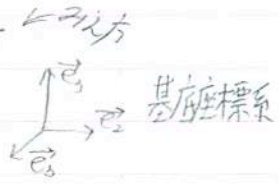 考え方
e₁
e₂ 基底座標系
e₃